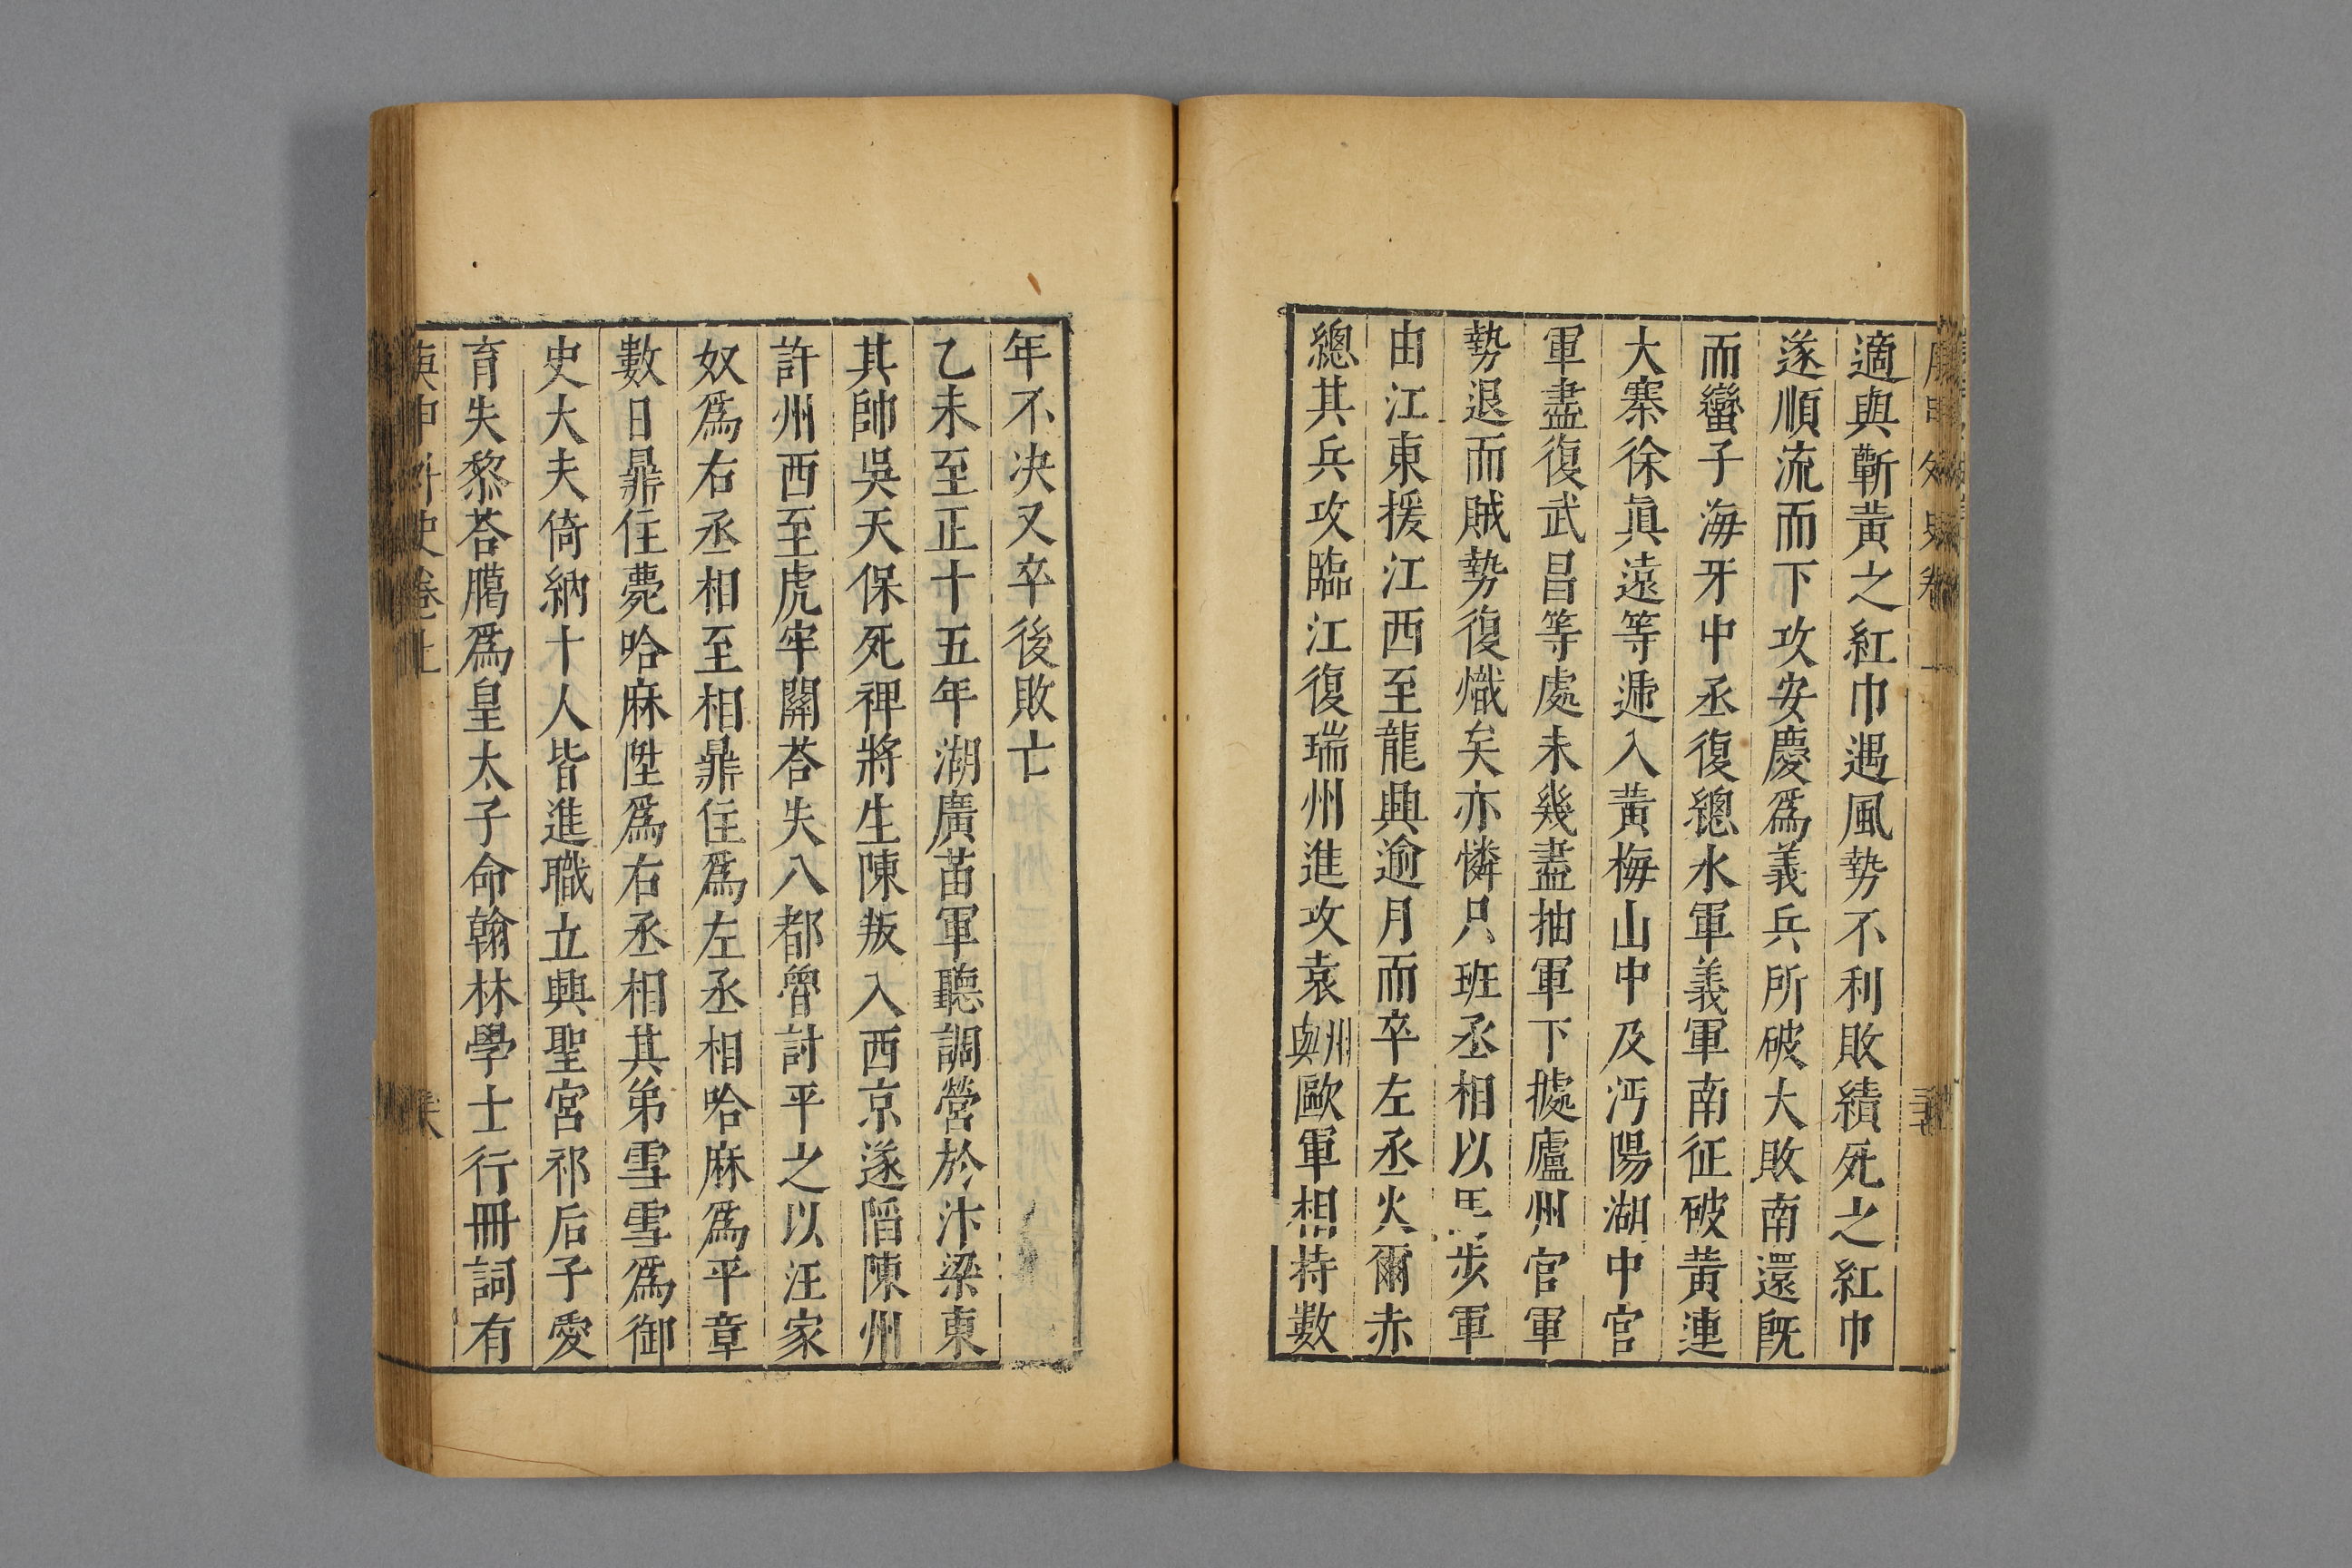 適與蘄黃之紅巾遇風勢不利敗績死之紅巾
遂順流而下攻安慶爲義兵所破大敗南還旣
而蠻子海牙中丞復總水軍義軍南征破黃連
大寨徐眞遠等遁入黃梅山中及沔陽湖中官
軍盡復武昌等處未幾盡抽軍下援廬州官軍
勢退而賊勢復熾矣亦憐只班丞相以步軍
由江東援江西至龍興逾月而卒左丞火爾赤
總其兵攻臨江復瑞州進攻袁州與歐軍相持數
年不决又卒後敗亡
乙未至正十五年湖廣苗軍聽調營於汴梁東
其帥吳天保死裨將生陳叛入西京遂陷陳州
許州西至虎牢關荅失八都魯討平之以汪家
奴爲右丞相至相鼎住爲左丞相哈麻爲平章
數日鼎住薨哈麻陞爲右丞相其弟雪雪爲御
史大夫倚納十人皆進職立興聖宮祁后子愛
育失黎荅臈爲皇太子命翰林學士行冊詞有
庚申外史卷上